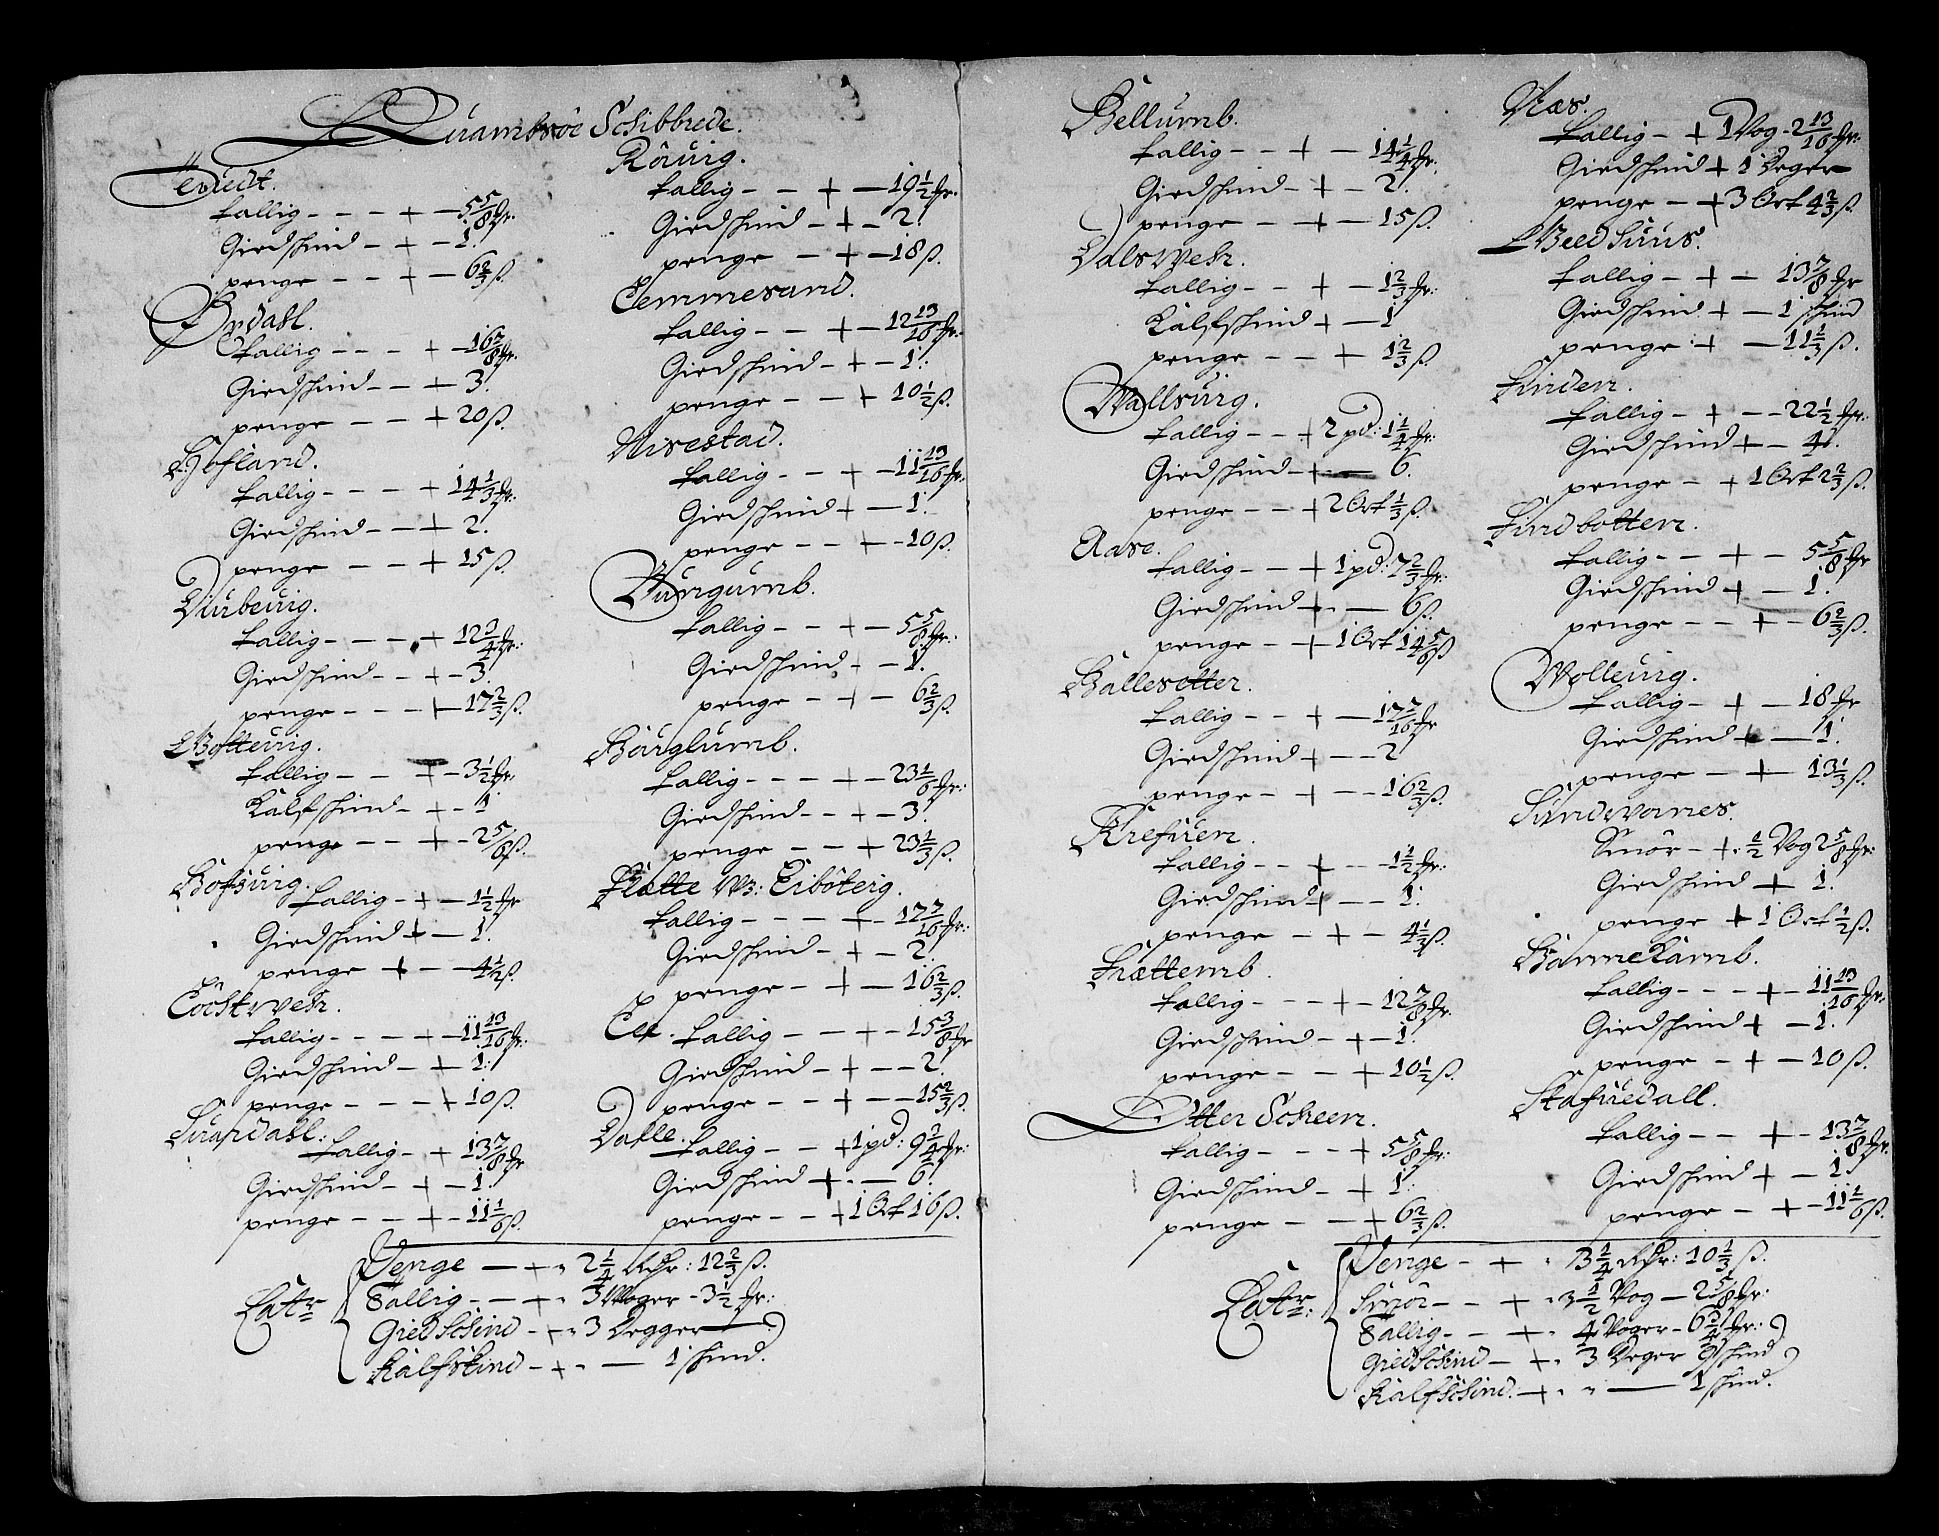 Quambsöe Schibbrede.
Teruedt.
tallig - - - + - 5 5/8 fr:
Giedschind - + - 1.
penge - - + - 6 2/3 ß.
Öxdahl.
tallig - - - + - 16 2/8 fr:
Giedschind - - + 3.
penge - - - + 20 ß.
Hofland.
tallig - - - + 14 1/3 fr:
Giedschind - - + 2.
penge - - - + 15 ß.
Diurbeuig.
tallig - - - + 12 3/4 fr:
Giedschind - - + - 3.
penge - - - + - 17 2/3 ß.
Botteuig.
tallig - - + - 3 1/2 fr:
Kalfschind - + - 1
penge - - + - 2 5/6 ß.
tallig - + - 1 1/2 fr
Giedschind + - 1.
penge + - - 4 1/2 ß.
tallig - - - + - 11 13/16 fr:
Giedschind - + 1:
penge - - - + 10 ß.
tallig - + 13 7/8 fr
Giedschind - + - 1.
penge - - + - 11 1/6 ß.
Röuig.
tallig - - + - 19 1/2 fr.
Giedschind - + - 2.
penge - + - 18 ß.
Temmesand.
tallig - - + - 12 13/16 fr.
Giedschind - + - 1:
penge - - + 10 1/2 ß.
Nisestad.
tallig - - + - 11 13/16 fr.
Giedschind + - 1.
penge - - + - 10 ß.
Wangumb.
tallig - - + - 5 5/8 fr:
Giedschind - - 1.
penge - + - 6 2/3 ß.
Börglumb.
tallig - - - + - 23 1/6 fr:
Giedschind - - + - 3.
penge - - + 23 1/3 ß.
Flatte W3: Eiböteig.
tallig - - - + - 17 7/16 fr:
Giedschind - + - 2.
penge - + - 16 2/3 ß.
tallig - - + - 15 3/8 fr
Giedschind - + - - 2.
penge - - + - - 15 2/3 ß.
Dalle.
tallig - - + 1 pd: 9 3/4 fr:
Giedschind + - - 6.
penge - - + 1 Ort 16 ß.
Lat:
Penge - + - 2 1/4 Rdr: 12 2/3 ß.
Tallig - - + - 3 Woger - 3 1/2 fr:
Giedschind - + - 3 Degger -
Kalfskind - + - - 1 schind.
Bellumb.
tallig - - + - 14 1/4 fr:
Giedschind - + - 2.
penge - - + - 15 ß.
Dalsvehr.
tallig - - + - 1 2/3 fr:
Kalfschind + - 1
penge - - + 1 2/3 ß.
Wallsuig.
tallig - - + 2 pd: 1 1/4 fr:
Giedschind - + - 6.
penge - - + 2 Ort 1/3 ß.
Aase.
tallig - - + 1 pd: 7 2/3 fr:
Giedschind + - 6 ß.
penge - + 1 Ort 14 5/6 ß
Ballesetter.
tallig - - + - 17 7/16 fr
Giedschind + - - 2
penge - + - - 16 2/3 ß.
Krefuen.
tallig - - + - - 1 1/2 fr:
Giedschind + - - 1:
penge - + - 4 1/3 ß.
Frættemb.
tallig - - - + - 12 7/8 fr.
Giedschind - + - 1.
penge - - + 10 1/2 ß.
Otter Scheen.
tallig - - - + 5 5/8 fr:
Giedschind - + 1:
penge - - + 6 2/3 ß.
Næs.
tallig - + 1 Vog - 2 13/16 fr:
Giedschind + 1 Deger
penge - + 3 Ort 4 2/3 ß.
tallig - + - 13 7/8 fr
Giedschind + - 1 schind
penge + - 11 1/3 ß.
Linden.
tallig - + - - 22 1/2 fr:
Giedschind + - 4.
penge - + 1 Ort 2 2/3 ß.
Lindbotten.
tallig - - + - 5 5/8 fr
Giedschind + - 1.
penge - - + - 6 2/3 ß.
Wolleuig.
tallig - + - 18 fr
Giedschind + - 1.
penge - + - 13 1/3 ß.
Sandvanes.
Smör - + 1/2 Vog 2 5/8 fr:
Giedschind + 1.
penge + 1 Ort 1/2 ß.
Bannekamb.
tallig - - - + - 11 13/16 fr.
Giedschind + - 1.
penge - + - 10 ß.
Stafuedall.
tallig - - + - 13 7/8 fr.
Giedschind + - 1.
penge - + - 11 1/6 ß.
Lat:
Penge - + - 3 1/4 Rdr: 10 1/3 ß.
Smör - - + - 3 1/2 Vog - 2 5/8 fr:
Tallig - - + - 4 Woger - 6 3/4 fr:
Giedschind - + - 3 Deger 9 schind
Kalfschind. - + - - 1 schind.